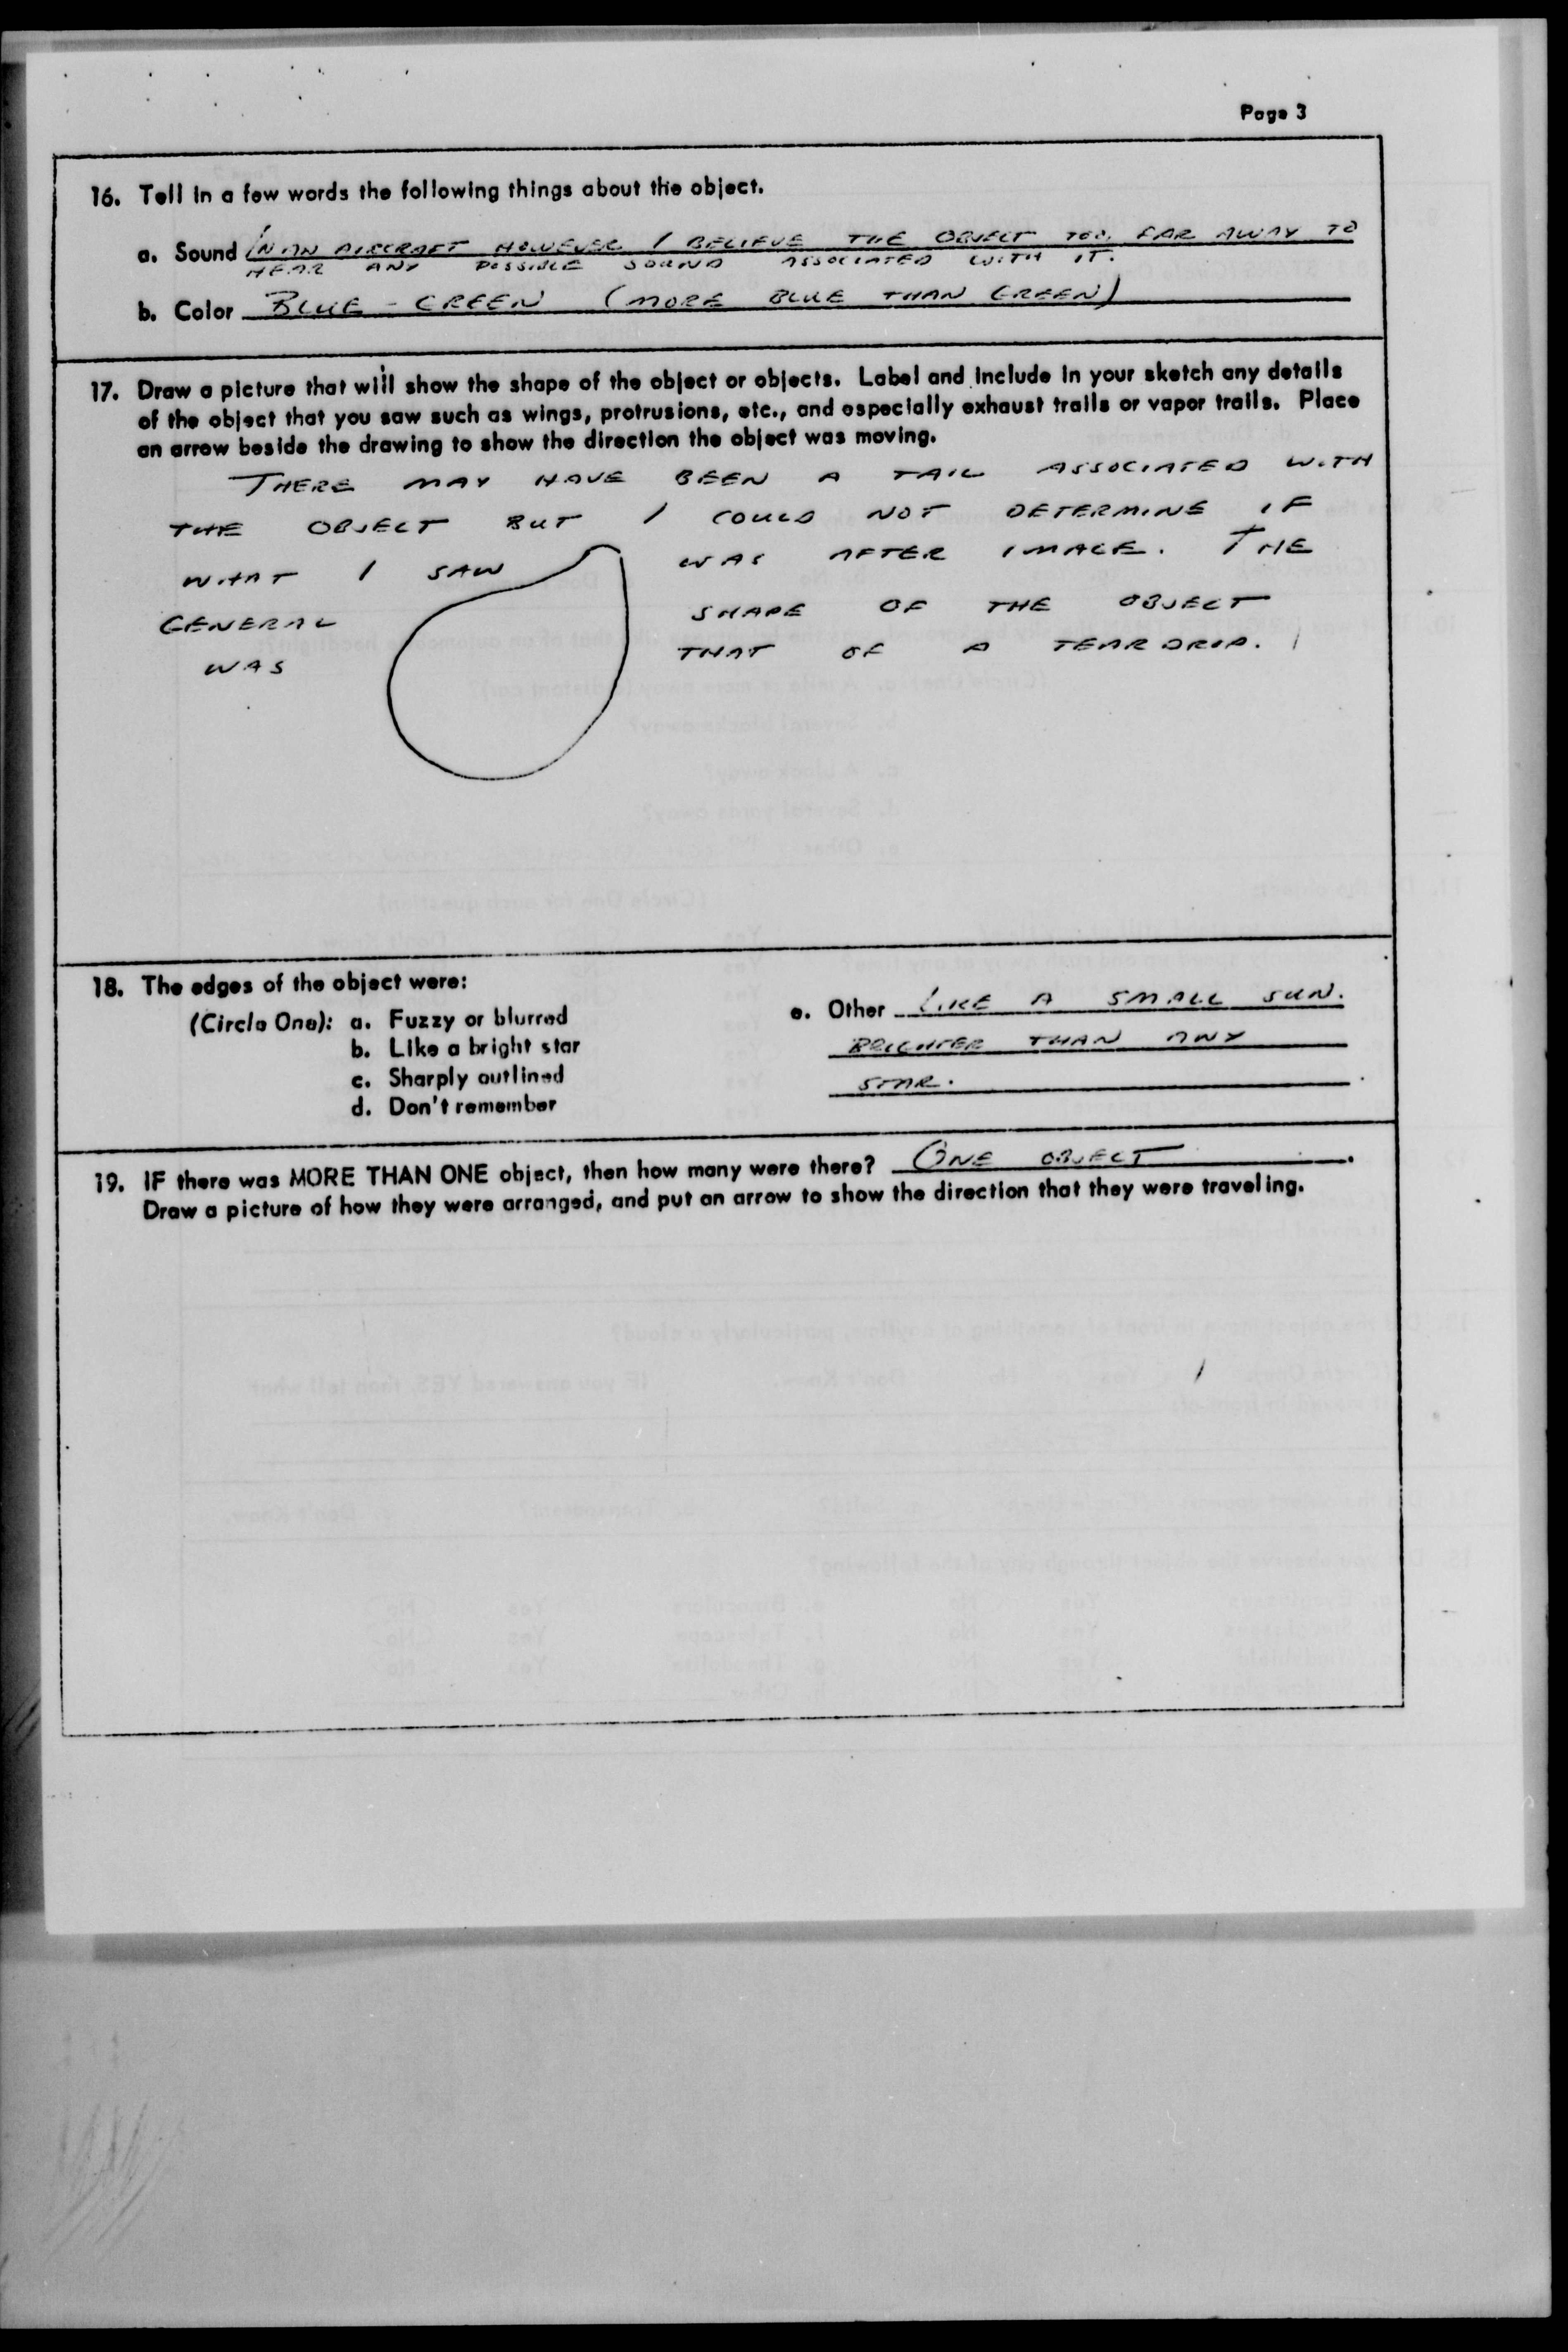 Page 3
16. Tell in a few words the following things about the object.
a. Sound IN AN AIRCRAFT HOWEVER I BELIEVE THE OBJECT TOO FAR AWAY TO
HEAR ANY POSSIBLE SOUND ASSOCIATED WITH IT.
b. Color BLUE - GREEN (MORE BLUE THAN GREEN)
17. Draw a picture that will show the shape of the object or objects. Label and include in your sketch any details
of the object that you saw such as wings, protrusions, etc., and especially exhaust trails or vapor trails. Place
an arrow beside the drawing to show the direction the object was moving.
THERE MAY HAVE BEEN A TAIL ASSOCIATED WITH
THE OBJECT BUT I COULD NOT DETERMINE IF
WHAT I SAW WAS AFTER IMAGE. THE
GENERAL SHAPE OF THE OBJECT
WAS THAT OF A TEAR DROP.
18. The edges of the object were:
(Circle One): a. Fuzzy or blurred
b. Like a bright star
c. Sharply outlined
d. Don't remember
e. Other LIKE A SMALL SUN.
BRIGHTER THAN ANY
STAR.
19. IF there was MORE THAN ONE object, then how many were there? ONE OBJECT.
Draw a picture of how they were arranged, and put an arrow to show the direction that they were traveling.